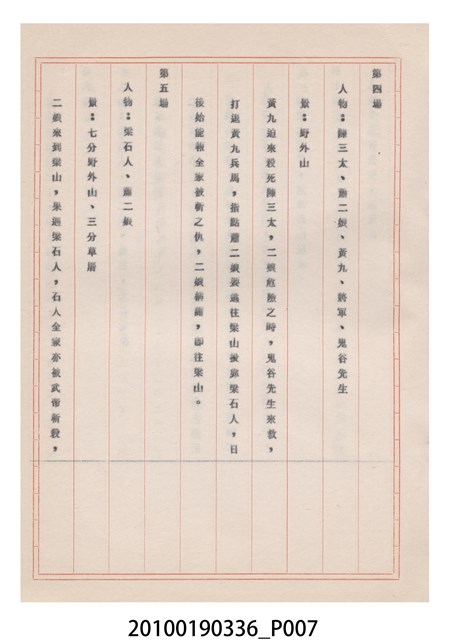 第四場
人物：陳三太、蕭二娘、黃九、將軍、鬼谷先生
景：野外山
黃九追來殺死陳三太，二娘危險之時，鬼谷先生來救，
打退黃九兵馬，指點蕭二娘要逃往梁山後尋梁石人，日
後始能報全家被斬之仇，二娘拜謝，即往梁山。
第五場
人物：梁石人、蕭二娘
景：七分野外山、三分草厝
二娘來到梁山，果遇梁石人，石人全家亦被武帝斬殺，
20100190336_P007